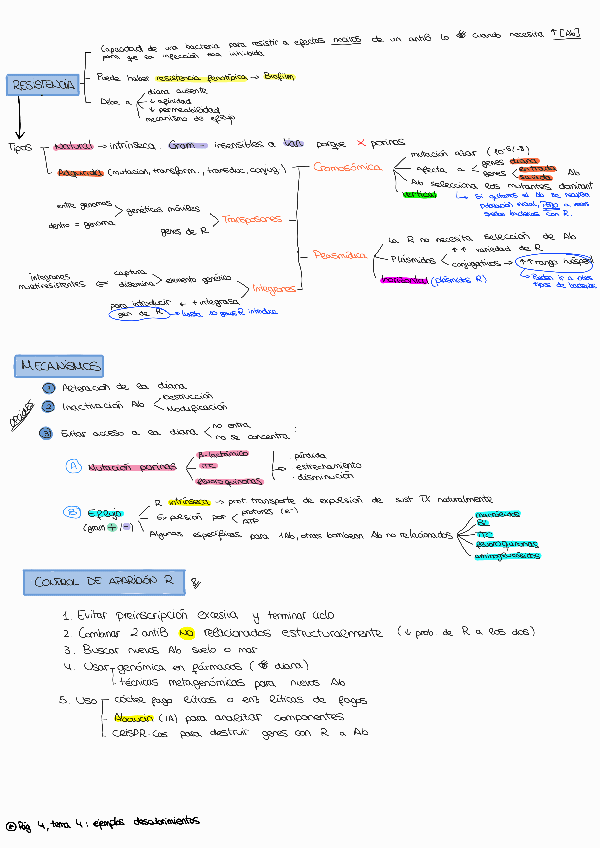 Capacidad de una bacteria para resistir a efectos nocivos de un antib lo cuando necesita ↑ [Ab]
para que la infección sea inhibida
RESISTENCIA
Puede haber resistencia fenotípica → Biofilm
Debe a
diana ausente
↓ afinidad
↓ permeabilidad
mecanismo de eflujo
Tipos
Natural → intrínseca. Gram - insensibles a van porque X porinas
Adquirida (mutación, transform., transduc, conjug.)
Cromosómica
mutación azar (10-6/-9)
afecta a
genes diana
genes entrada
salida Ab
Ab selecciona los mutantes dominant
vertical
Si quitamos el ab se recupera
población inicial, pero a veces
quedan bacterias con R.
entre genomas
dentro = genoma
genéticas móviles
genes de R
Transposones
Plasmídica
La R no necesita selección de Ab
Plásmidos
↑↑ variedad de R
conjugativos → ↑↑ rango huésped
Pueden ir a otros
tipos de bacterias
horizontal (plásmidos R)
integrones
multirresistentes
captura
disemina
elemento genético
Integrones
para introducir
gen de R
+ integrasa
MECANISMOS
1 Alteración de la diana
2 Inactivación Ab
Destrucción
Modificación
3 Evitar acceso a la diana
no entra
no se concentra:
A Mutación porinas
β-lactámico
TTC
fluoroquinonas
· pérdida
· estrechamiento
· disminución
B Eflujo
(gram +/-)
R intrínseca → prot. transporte de expulsión de sust TX naturalmente
Expulsión por
protones (e-)
ATP
Algunas específicas para 1Ab, otras bombean Ab no relacionados
macrólidos
BL
TTC
fluoroquinonas
aminoglucósidos
CONTROL DE APARICIÓN R
1. Evitar preinscripción excesiva y terminar ciclo
2. Combinar 2 antiB NO relacionados estructuralmente (↓ prob. de R a los dos)
3. Buscar nuevos Ab suelo o mar
4. Usar
genómica en fármacos ( diana)
técnicas metagenómicas para nuevos Ab
5. Uso
cóctel fago líticos o enz líticas de fagos
(IA) para analizar componentes
CRISPR-Cas para destruir genes con R a Ab
Pág 4, tema 4: ejemplos descubrimientos